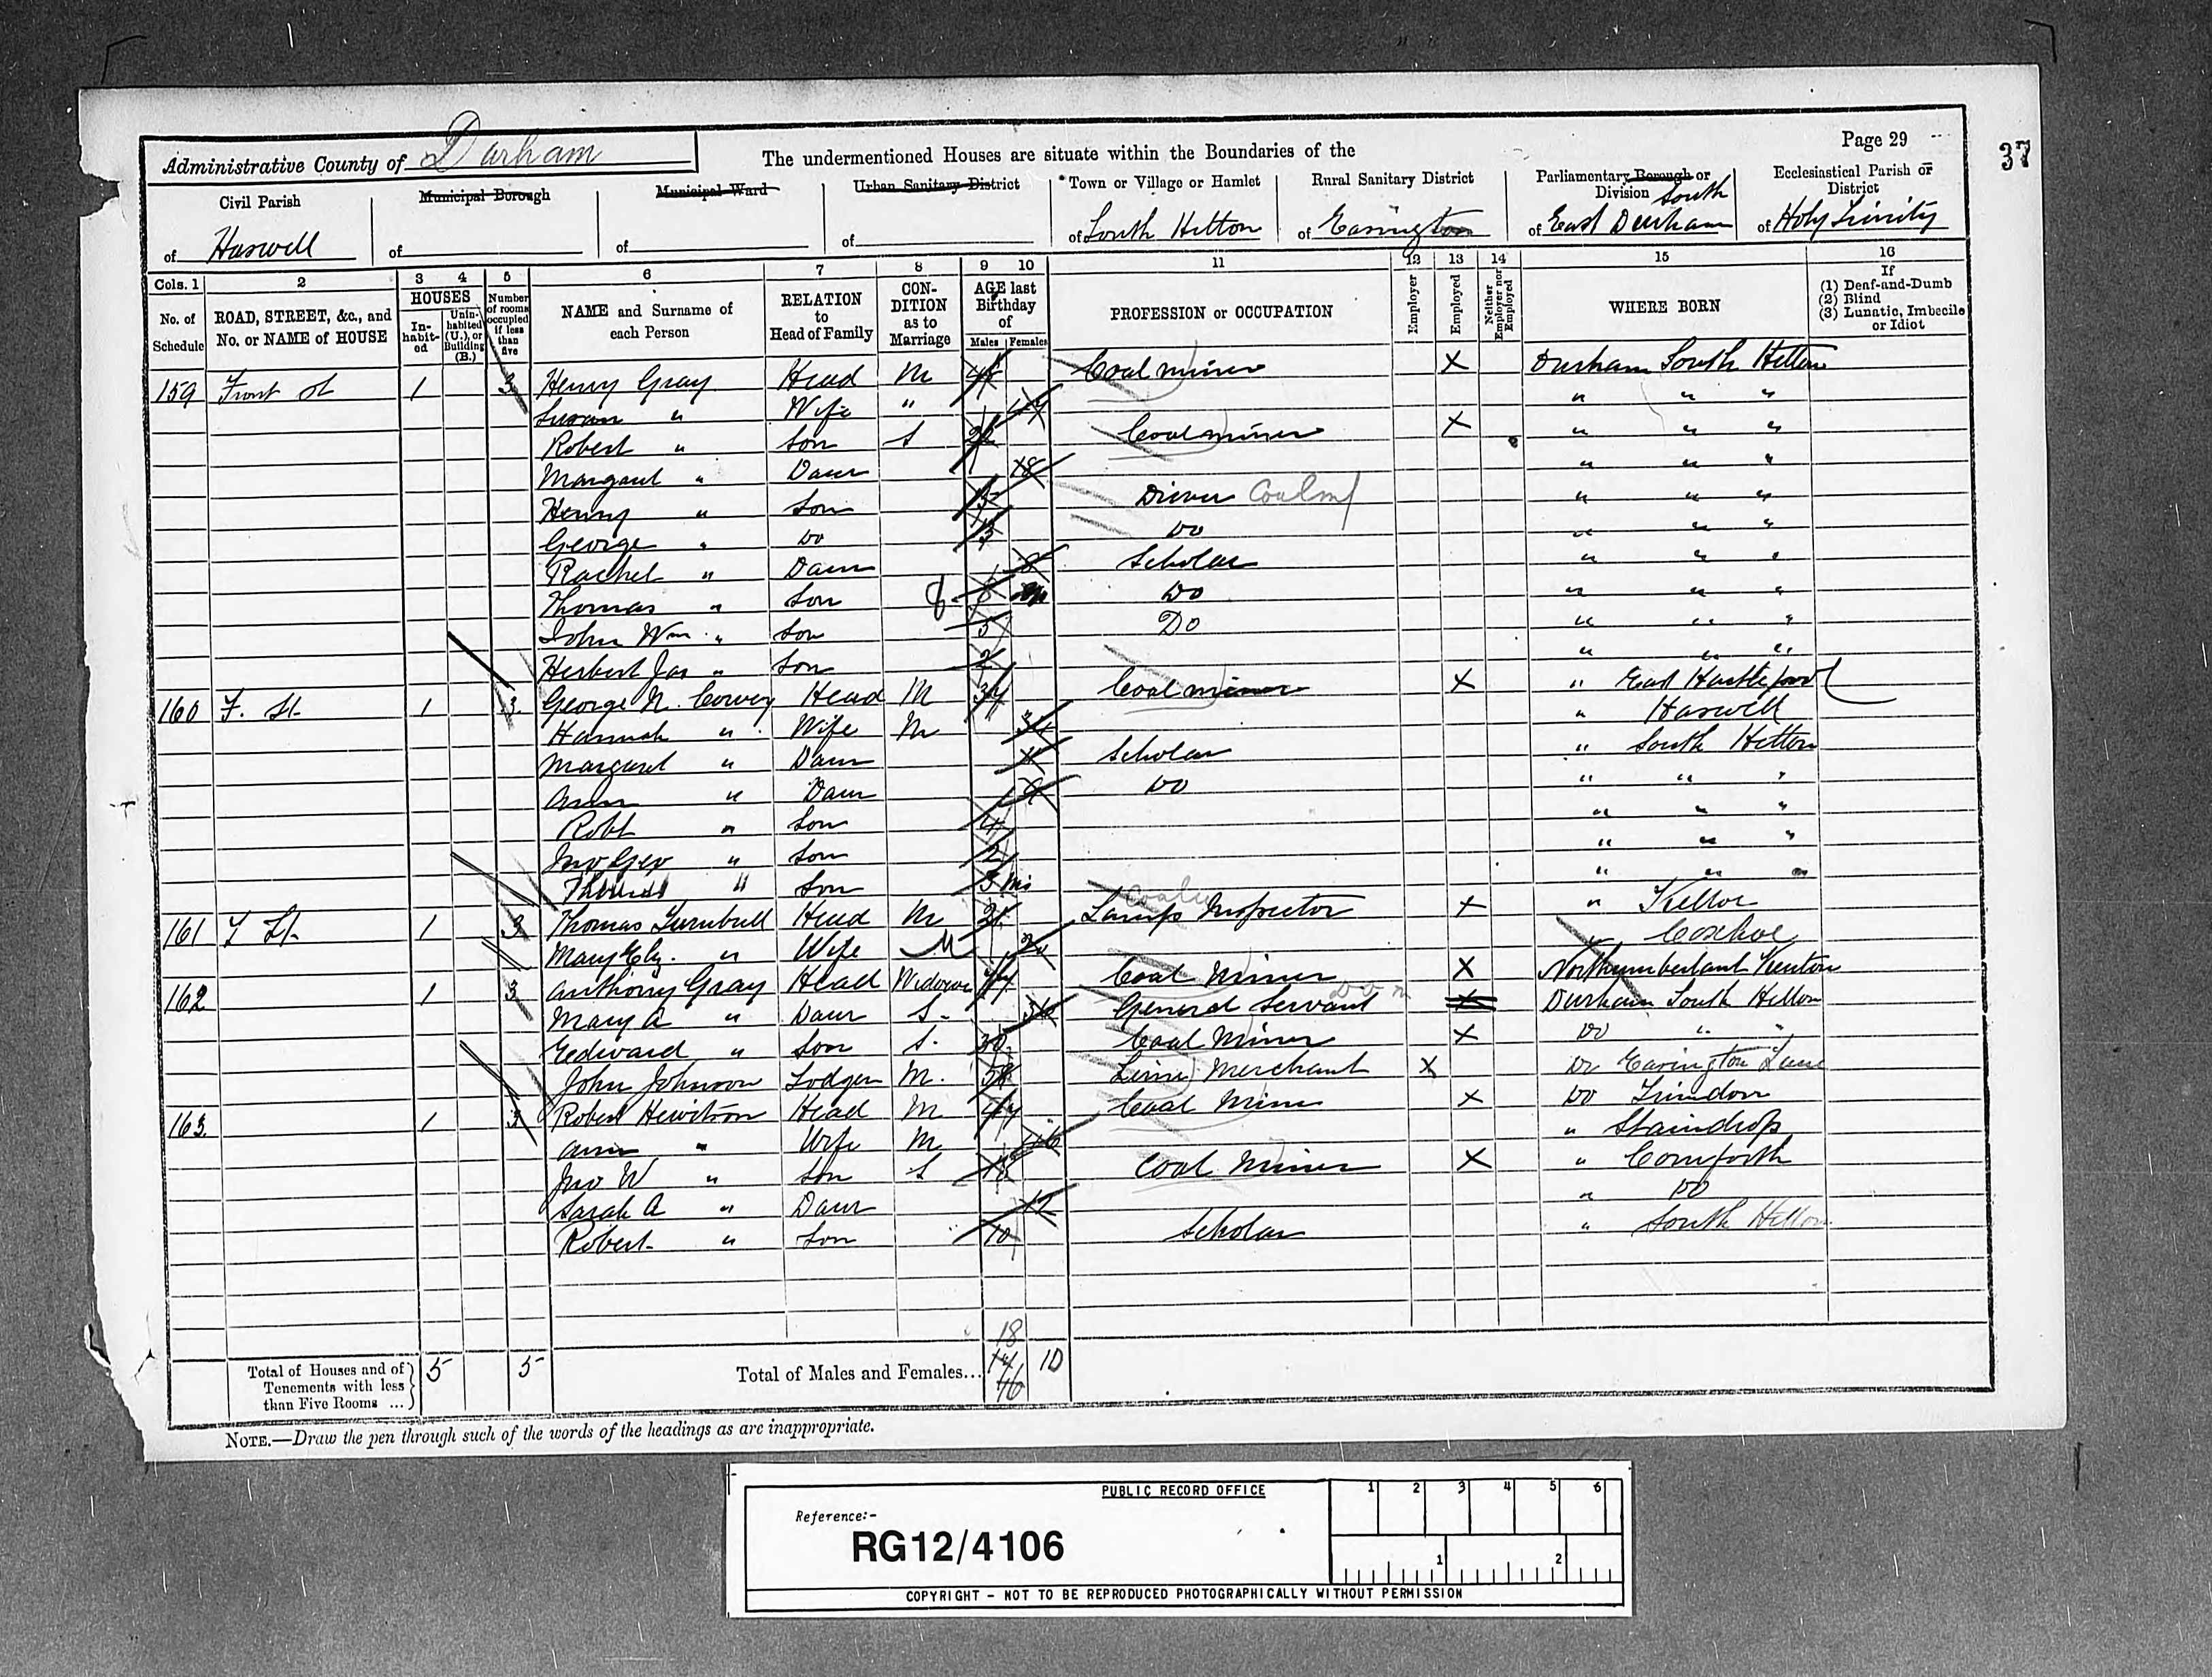 Page 29
37
Administrative County of Durham
The undermentioned Houses are situate within the Boundaries of the
Civil Parish of Haswell
Municipal Borough of
Municipal Ward of
Urban Sanitary District of
Town or Village or Hamlet of South Hetton
Rural Sanitary District of Easington
Parliamentary Borough or Division of South East Durham
Ecclesiastical Parish or District of Holy Trinity
Cols. 1 2 3 4 5 6 7 8 9 10 11 12 13 14 15 16
No. of Schedule
ROAD, STREET, &c., and No. or NAME of HOUSE
HOUSES
Inhabited
Uninhabited (U.), or Building (B.)
Number of rooms occupied if less than five
NAME and Surname of each Person
RELATION to Head of Family
CONDITION as to Marriage
AGE last Birthday of
Males Females
PROFESSION or OCCUPATION
Employer
Employed
Neither Employer nor Employed
WHERE BORN
If
(1) Deaf-and-Dumb
(2) Blind
(3) Lunatic, Imbecile or Idiot
159 Front St 1 3 Henry Gray Head M Coal miner X Durham South Hetton
Susan " Wife " 47 " " "
Robert " Son S Coal miner X " " "
Margaret " Daur 18 " " "
Henry " Son 15 Driver Coal m " " "
George " Do 13 Do " " "
Rachel " Daur 8 Scholar " " "
Thomas " Son 8 8 Do " " "
John Wm " Son 5 Do " " "
Herbert Jas " Son 2 " " "
160 F. St. 1 3 George N. Head M 34 Coal miner X " East Hartlepool
Hannah " Wife M " Haswell
Margaret " Daur Scholar " South Hetton
Ann " Daur Do " " "
Robt " Son 4 " " "
Jno Geo " Son 2 " " "
Thomas " Son 3 mo " " "
161 F St. 1 3 Thomas Turnbull Head M Lamp Inspector X " Kelloe
Mary Elz. " Wife M " Coxhoe
162 1 3 Anthony Gray Head Widower Coal Miner X Northumberland Kenton
Mary A " Daur S. General Servant Dom X Durham South Hetton
Edward " Son S. 30 Coal Miner X Do " "
John Johnson Lodger M. Lime Merchant X Do Easington Lane
163. 1 3 Robert Hewitson Head M 47 Coal Miner X Do Trimdon
Ann " Wife M 46 " Staindrop
Jno W " Son S 18 Coal Miner X " Cornforth
Sarah A " Daur 12 " Do
Robert " Son 10 Scholar " South Hetton
Total of Houses and of Tenements with less than Five Rooms ... 5 5
Total of Males and Females... 18 10
NOTE.—Draw the pen through such of the words of the headings as are inappropriate.
PUBLIC RECORD OFFICE
1 2 3 4 5 6
Reference:-
RG12/4106
1 2
COPYRIGHT - NOT TO BE REPRODUCED PHOTOGRAPHICALLY WITHOUT PERMISSION